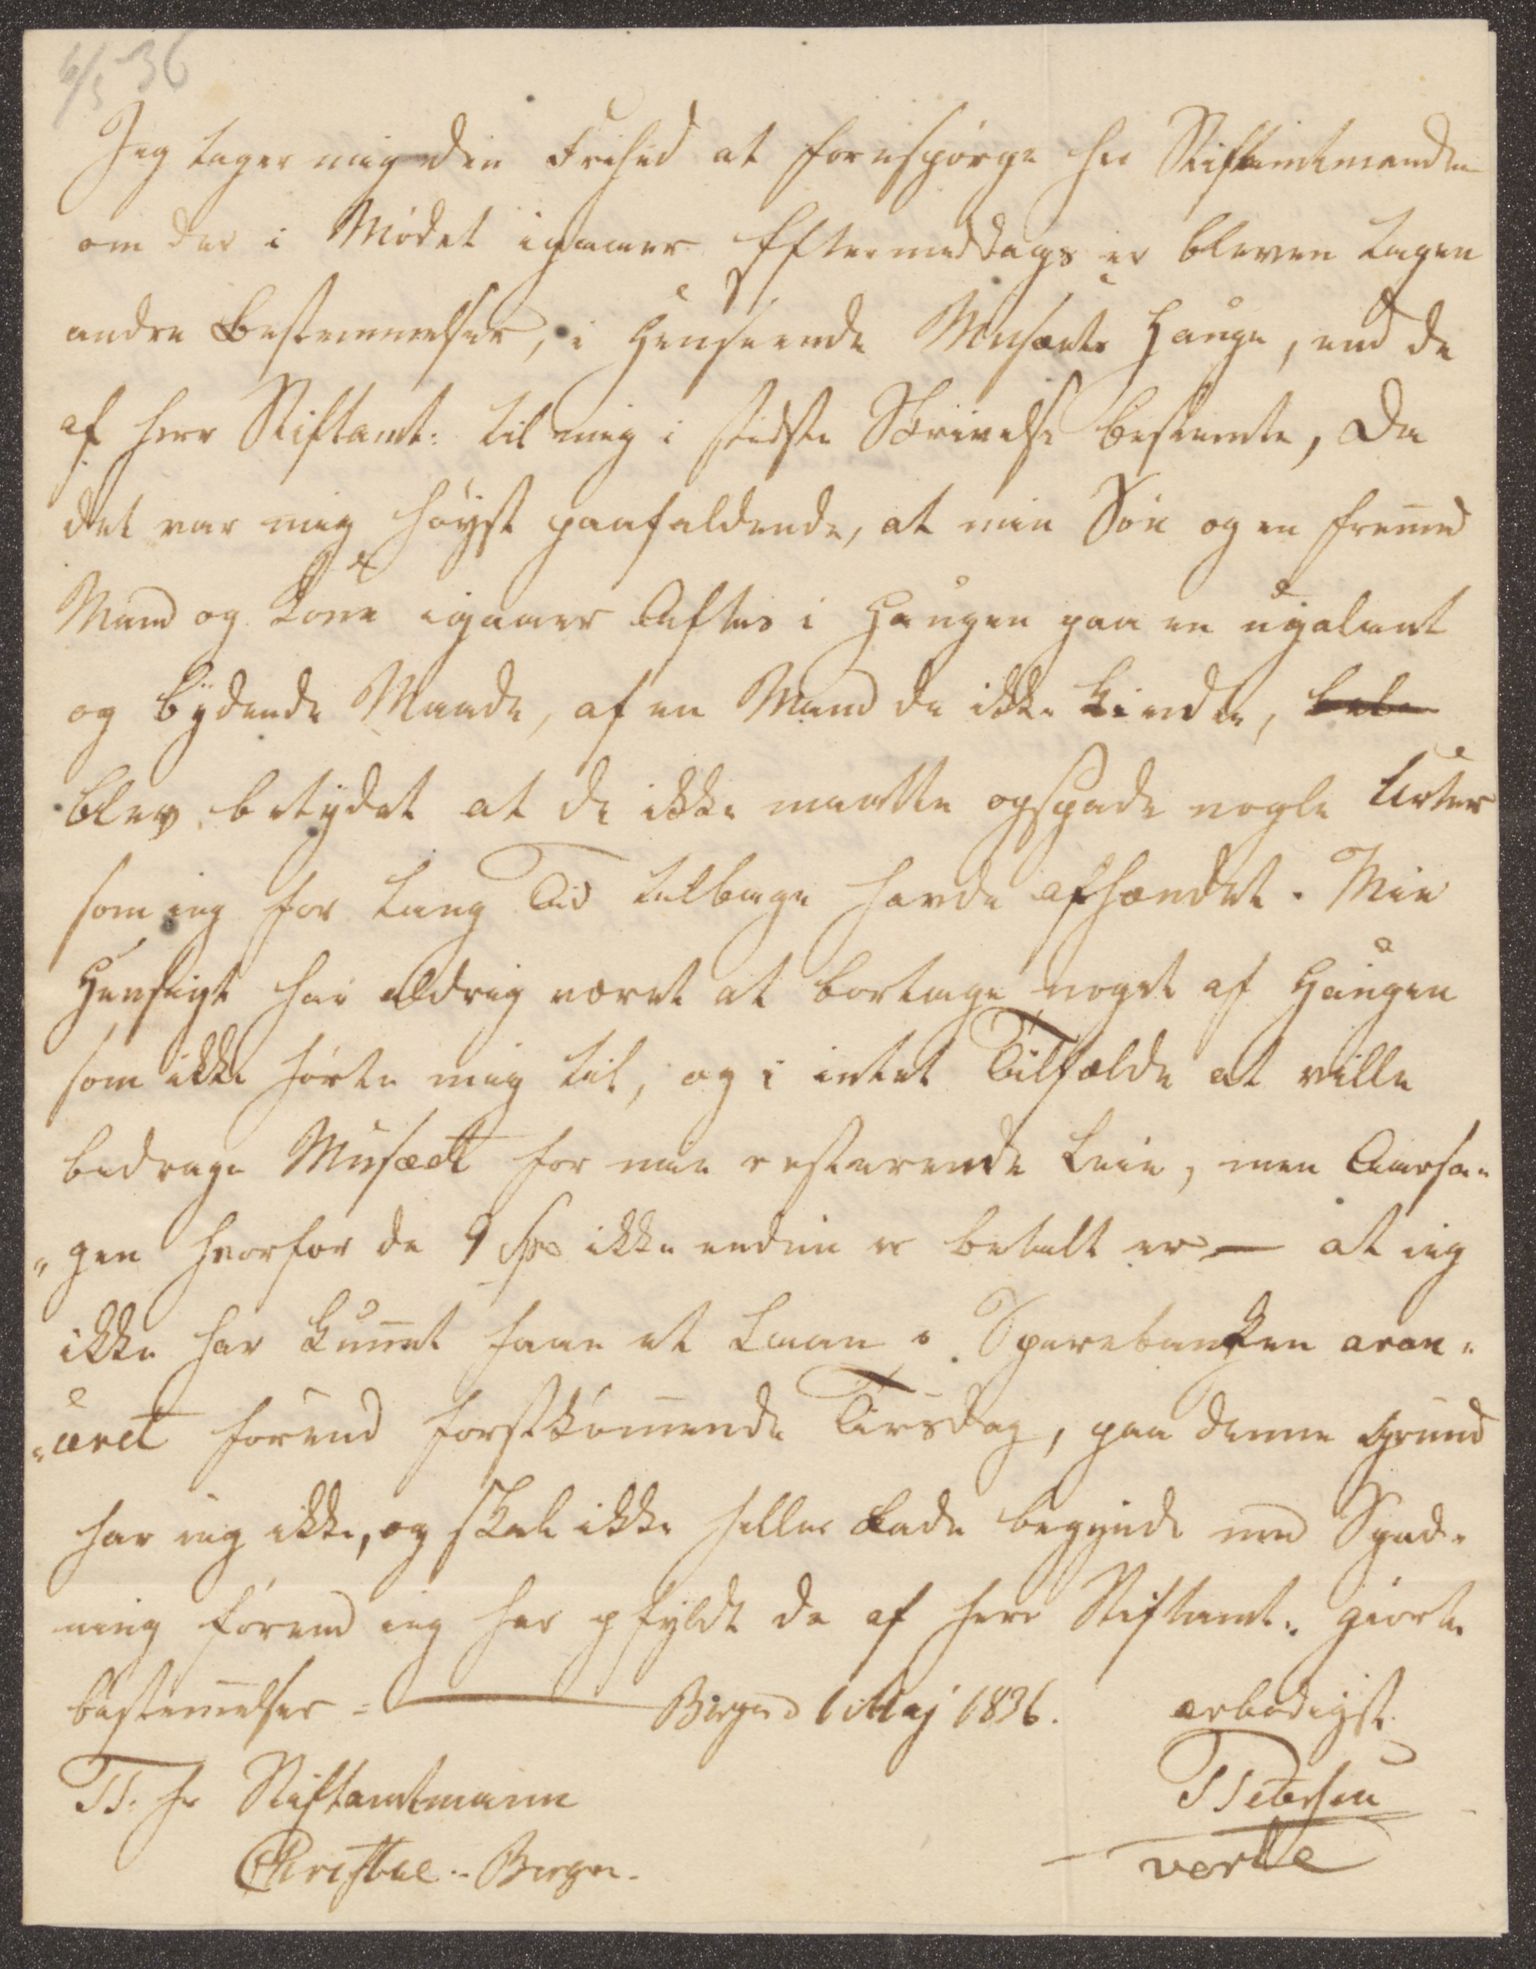 6/5 36
Jeg tager mig den Frihed at forespørge Hr Stiftamtmanden
om der i Mødet igaaer Eftermiddags er bleven tagen
andre Bestemmelser, i Henseende Musæets Hauge, end de
af Herr Stiftamt: til mig i sidste Skrivelse bestemte, Da
det var mig høyst paafaldende, at min Søn og en fremed
Mand og Kone igaaer Aftes i Haugen paa en ugalant
og bydende Maade, af en Mand de ikke kiendte,
blev betydet at de ikke maatte opspade nogle Urter
som ieg for lang Tid tilbage havde afhændet. Min
Hensigt har aldrig været at borttage noget af Haugen
som ikke hørte mig til, og i intet Tilfælde at ville
bedrage Musæet for min resterende Leie, men Aarsa-
"gen hvorfor de 9 Spd ikke endnu er betalt er — at ieg
ikke har kunnet faae et Laan i Sparebanken aran-
"geret førend førstkomende Tirsdag, paa denne Grund
har ieg ikke, og skal ikke heller lade begynde med Spad-
ning førend ieg har opfyldt de af Herr Stiftamt: giorte
bestemelser = — Bergen d 6 Maj 1836. ærbødigst
TT. Hr Stiftamtmann TPetersen
Christie .. Bergen. verte